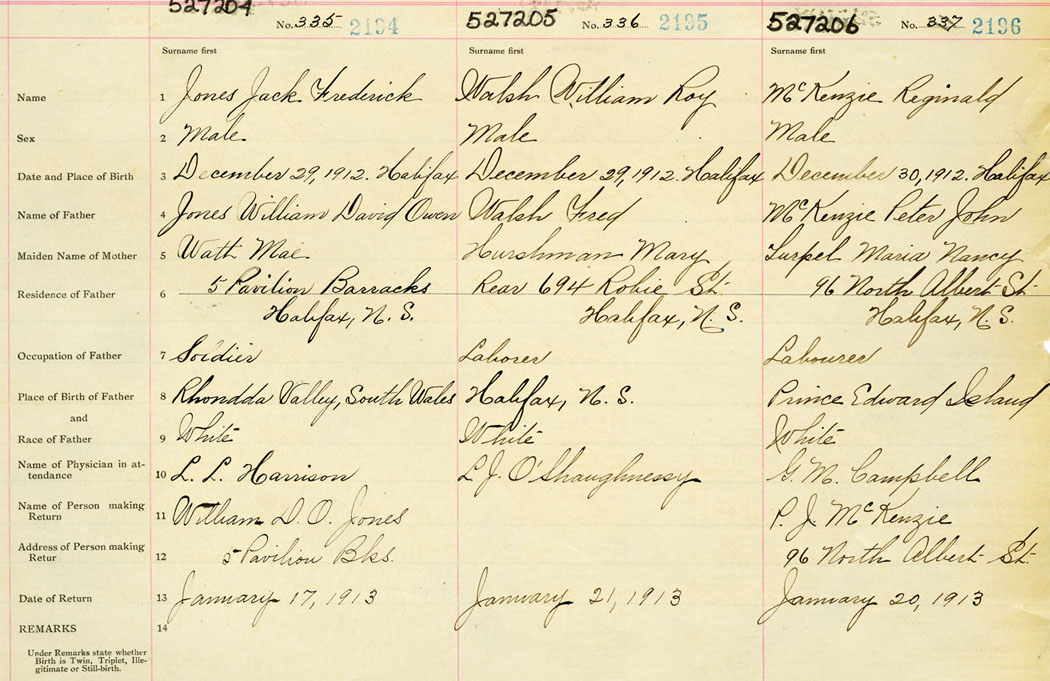 527204 No. 335 2134 527205 No. 336 2135 527206 No. 337 2136
Surname first Surname first Surname first
Name 1 Jones Jack Frederick Walsh William Roy McKenzie Reginald
Sex 2 Male Male Male
Date and Place of Birth 3 December 29, 1912. Halifax December 29, 1912. Halifax December 30, 1912. Halifax
Name of Father 4 Jones William David Owen Walsh Fred McKenzie Peter John
Maiden Name of Mother 5 Watt Mae Hurshman Mary Turpel Maria Nancy
Residence of Father 6 5 Pavilion Barracks Rear 694 Robie St. 96 North Albert St.
Halifax, N. S. Halifax, N. S. Halifax, N. S.
Occupation of Father 7 Soldier Laborer Labourer
Place of Birth of Father 8 Rhondda Valley, South Wales Halifax, N. S. Prince Edward Island
and
Race of Father 9 White White White
Name of Physician in at-
tendance 10 L. L. Harrison L. J. O'Shaughnessy G. M. Campbell
Name of Person making
Return 11 William D. O. Jones P. J. McKenzie
Address of Person making
Retur 12 5 Pavilion Bks. 96 North Albert St.
Date of Return 13 January 17, 1913 January 21, 1913 January 20, 1913
REMARKS 14
Under Remarks state whether
Birth is Twin, Triplet, Ille-
gitimate or Still-birth.